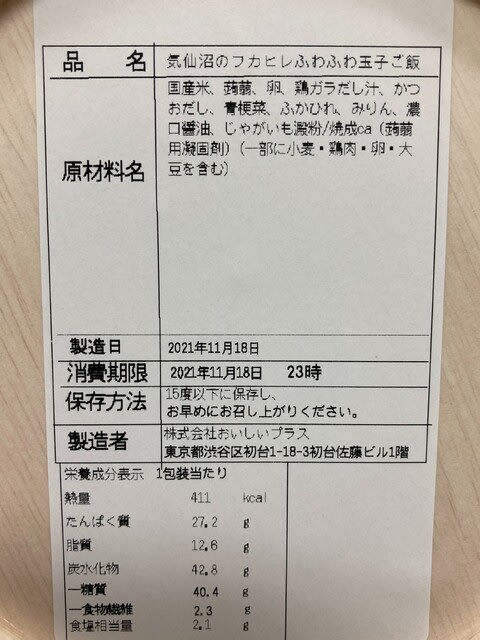 品名 気仙沼のフカヒレふわふわ玉子ご飯
原材料名
国産米、蒟蒻、卵、鶏ガラだし汁、かつ
おだし、青梗菜、ふかひれ、みりん、濃
口醤油、じゃがいも澱粉/焼成ca（蒟蒻
用凝固剤）（一部に小麦・鶏肉・卵・大
豆を含む）
製造日 2021年11月18日
消費期限 2021年11月18日 23時
保存方法
15度以下に保存し、
お早めにお召し上がりください。
製造者
株式会社おいしいプラス
東京都渋谷区初台1-18-3初台佐藤ビル1階
栄養成分表示 1包装当たり
熱量 411 kcal
たんぱく質 27.2 g
脂質 12.6 g
炭水化物 42.8 g
―糖質 40.4 g
―食物繊維 2.3 g
食塩相当量 2.1 g